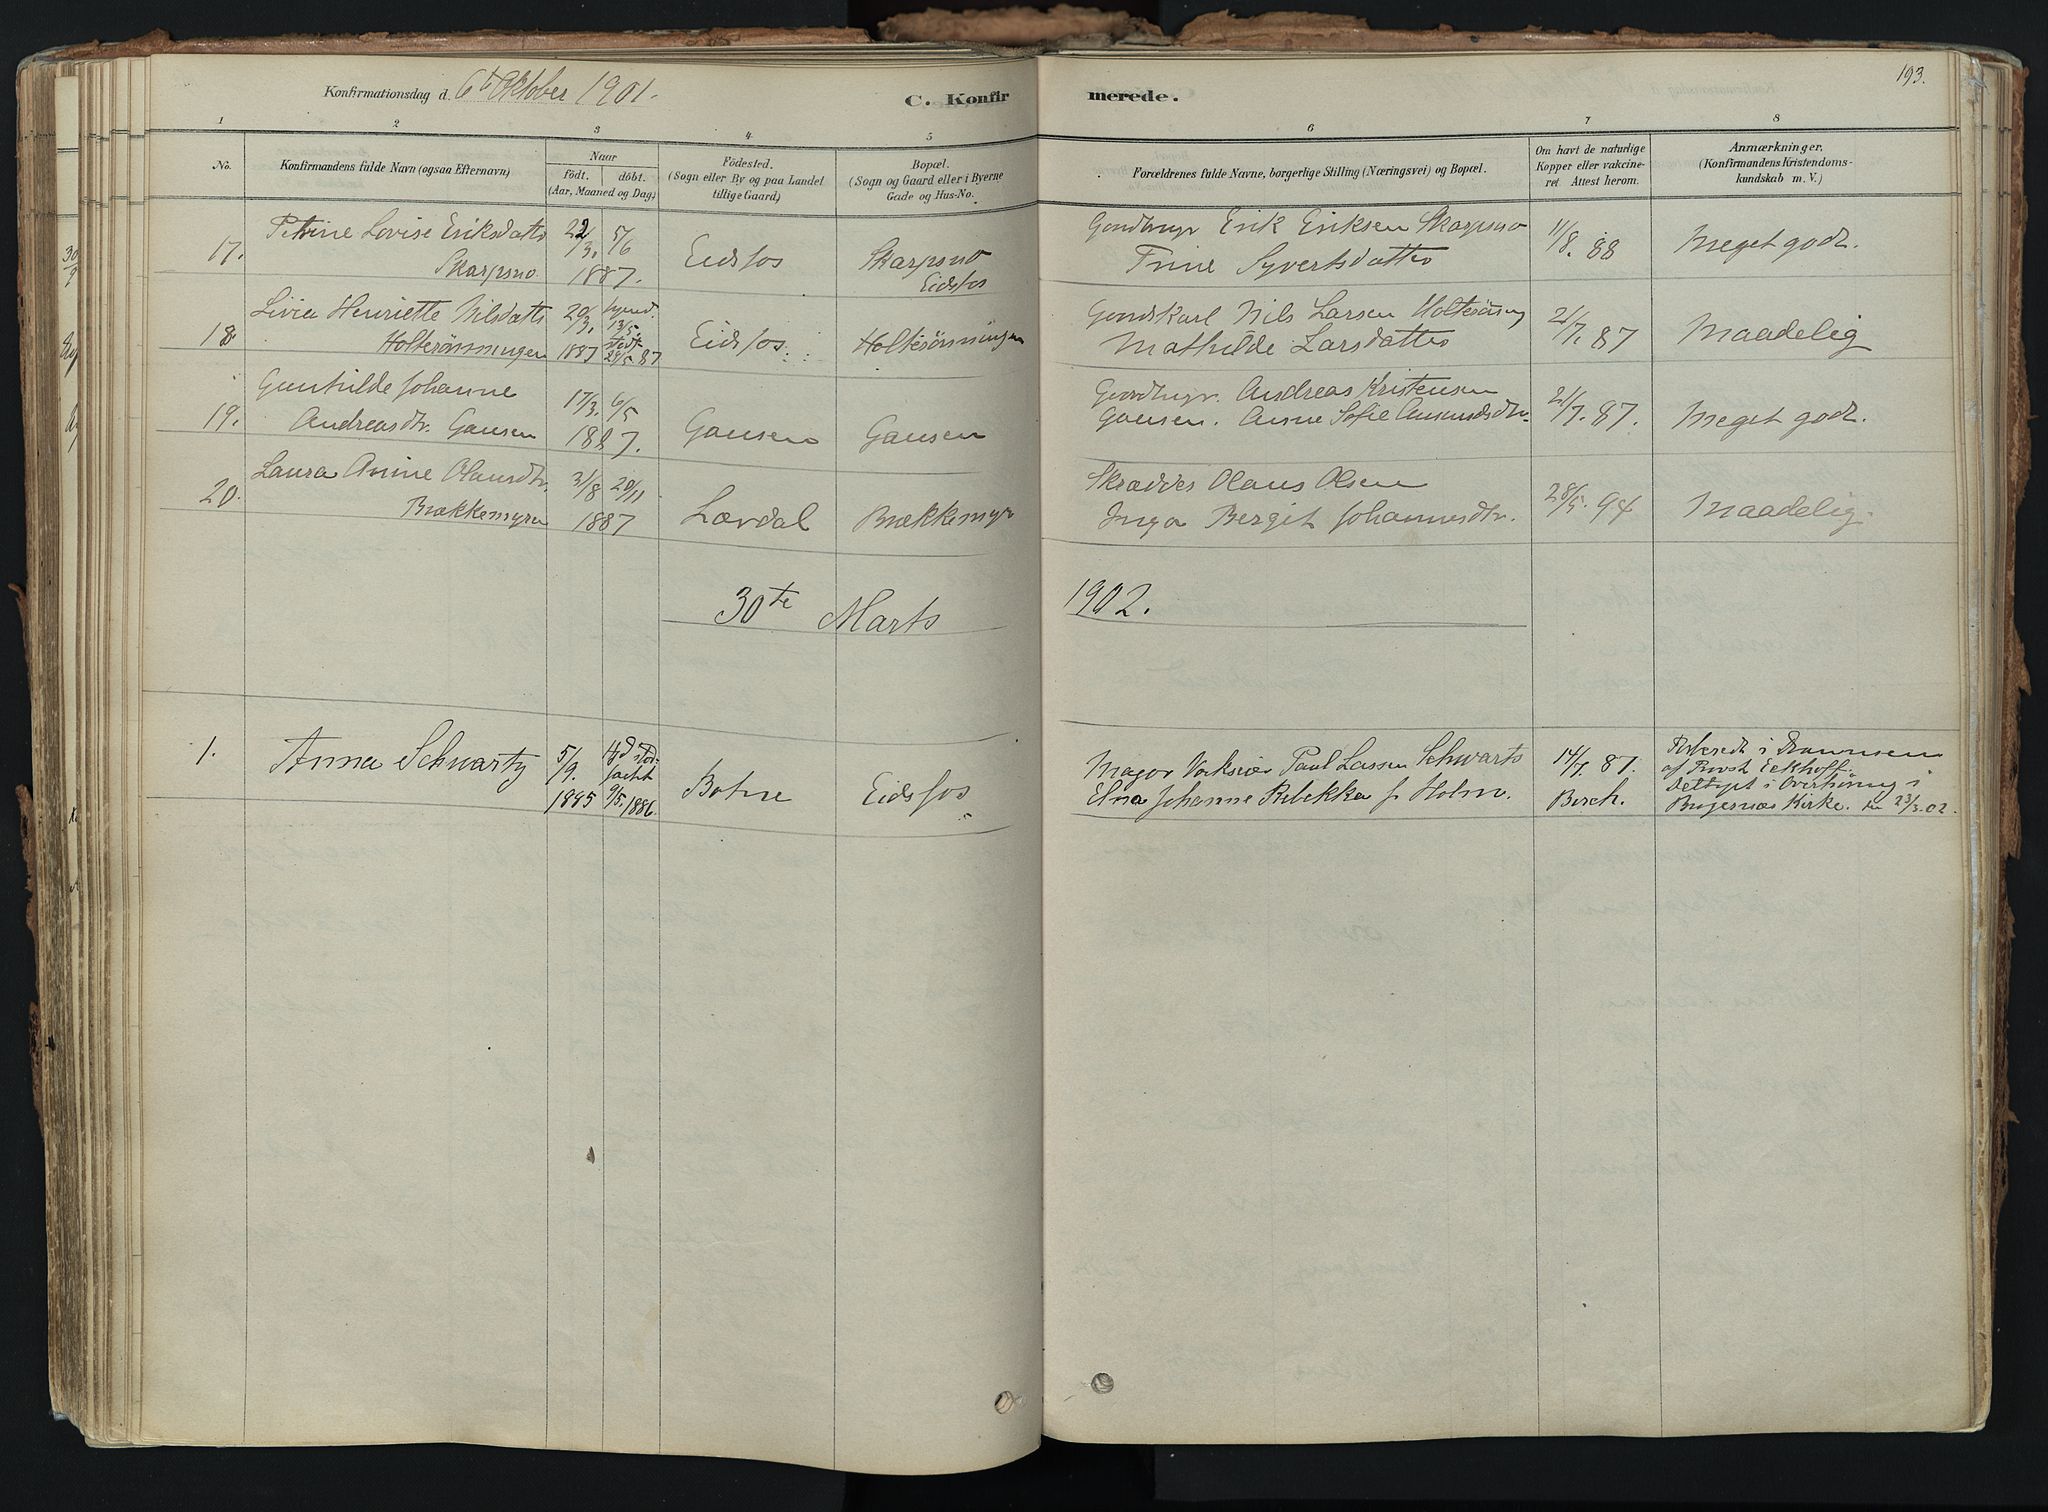 193.
Konfirmationsdag d. 6te Oktober 1901.
C. Konfirmerede.
1 2 3 4 5 6 7 8
No.
Konfirmandens fulde Navn (ogsaa Efternavn)
Naar
födt. döbt.
(Aar, Maaned og Dag)
Födested.
(Sogn eller By og paa Landet
tillige Gaard)
Bopæl.
(Sogn og Gaard eller i Byerne
Gade og Hus-No.
Forældrenes fulde Navne, borgerlige Stilling (Næringsvei) og Bopæl.
Om havt de naturlige
Kopper eller vakcine-
ret Attest herom.
Anmærkninger.
(Konfirmandens Kristendoms-
kundskab m. V.)
17. Petrine Lovise Eriksdatter
Skarpsno.
22/3. 5/6
1887.
Eidsfos
Skarpsno
Eidsfos
Erik Eriksen Skarpsno
Trine Syvertsdatter
11/8. 88
Meget godt.
18. Livia Henriette Nilsdatter
Holterönningen
20/3. hjemd. 13/5.
1887 28/5 87
Eidsfos
Holterönningen
Nils Larsen
Mathilde Larsdatter
21/7. 87
Maadelig
19. Gunhilde Johanne
Andreasdtr. Gausen
17/3. 6/5
1887.
Gausen
Gausen
Andreas Kristensen
Gausen. Anne Sofie
21/7. 87.
Meget godt.
20. Laura Anine Olausdtr.
Brækkemyra
31/8 20/11
1887
Lærdal
Brækkemyr
Skrædder Olaus Olsen
Inga Berget Johannesdtr.
28/5. 94
Maadelig
30te Marts 1902.
1. Anna Schwartz
5/9.
1885
9/5. 1886.
Botne
Eidsfos
Major Paul Lassen Schwartz
Elna Johanne Rebekka f. Holm.
14/7. 87.
Borch.
i Drammen
af Eckhoff.
Deltaget i Overhöring i
Bragernæs Kirke. den 23/3. 02.